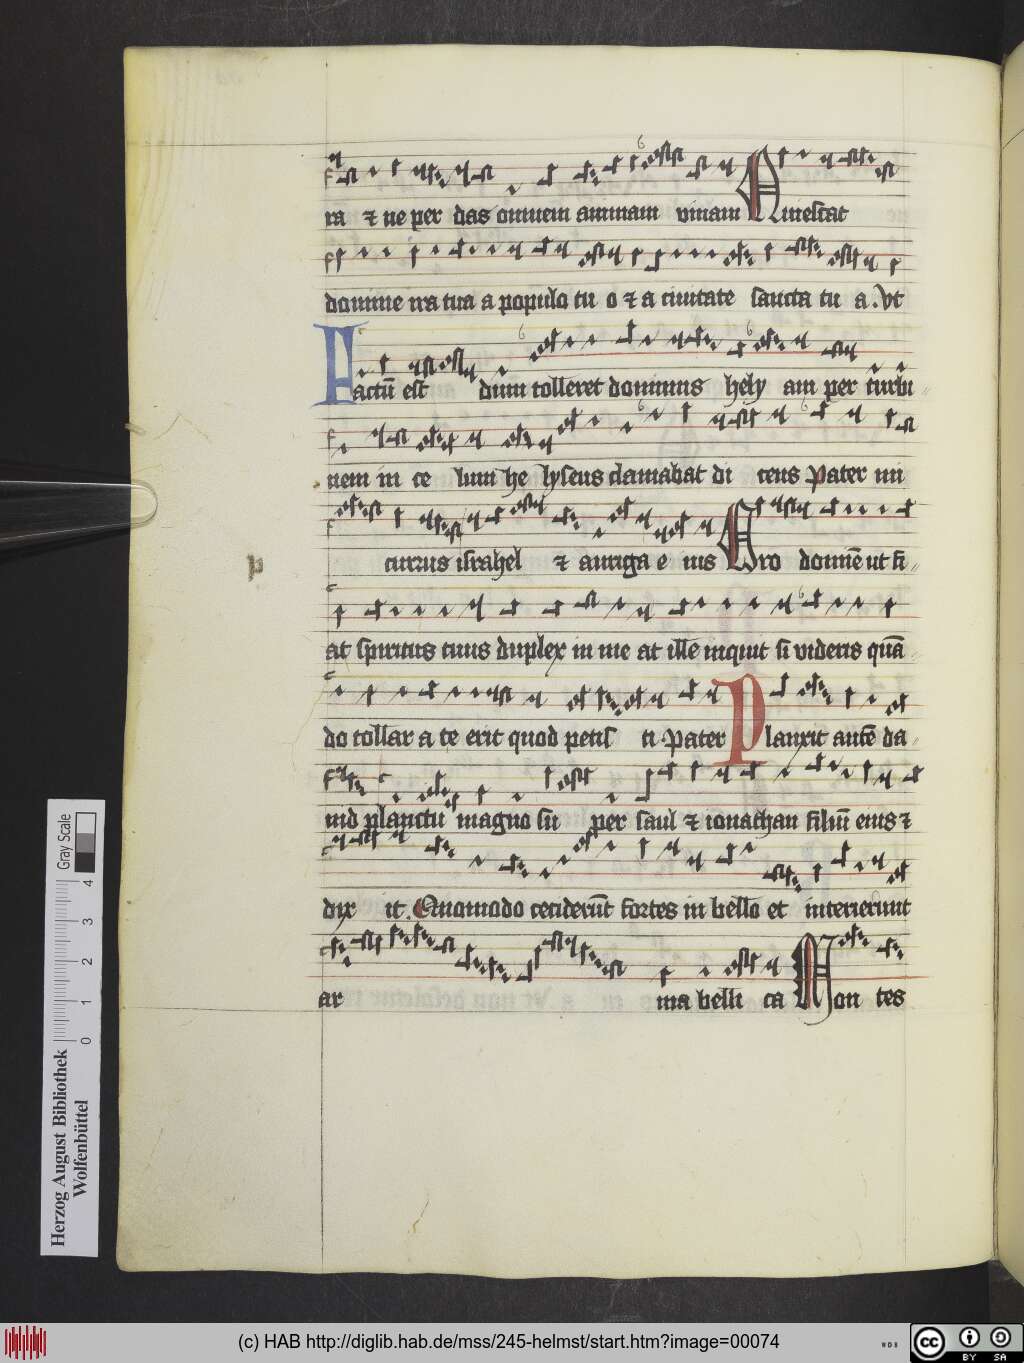 ra ⁊ ne per das omnem animam vinam Auiescat
domine ira tua a populo tu o ⁊ a ciuitate sancta tu a . Vt
Factū est dum tolleret dominus hely am per turbi
nem in ce lum he lyseus clamabat di cens Pater mi
currus israhel ⁊ auriga e ius Oro domīe ut fi
at spiritus tuus duplex in me at ille inquit si videris quā
do tollar a te erit quod petis ti . Pater Planxit autē da
uid planctū magno su per saul ⁊ ionathan filiū eius ⁊
dix it . Quomodo ceciderūt fortes in bello et interierunt
ar ma belli ca Mon tes
p
Herzog August Bibliothek
Wolfenbüttel
0 1 2 3 4
Gray Scale
(c) HAB http://diglib.hab.de/mss/245-helmst/start.htm?image=00074
WDB
cc BY SA